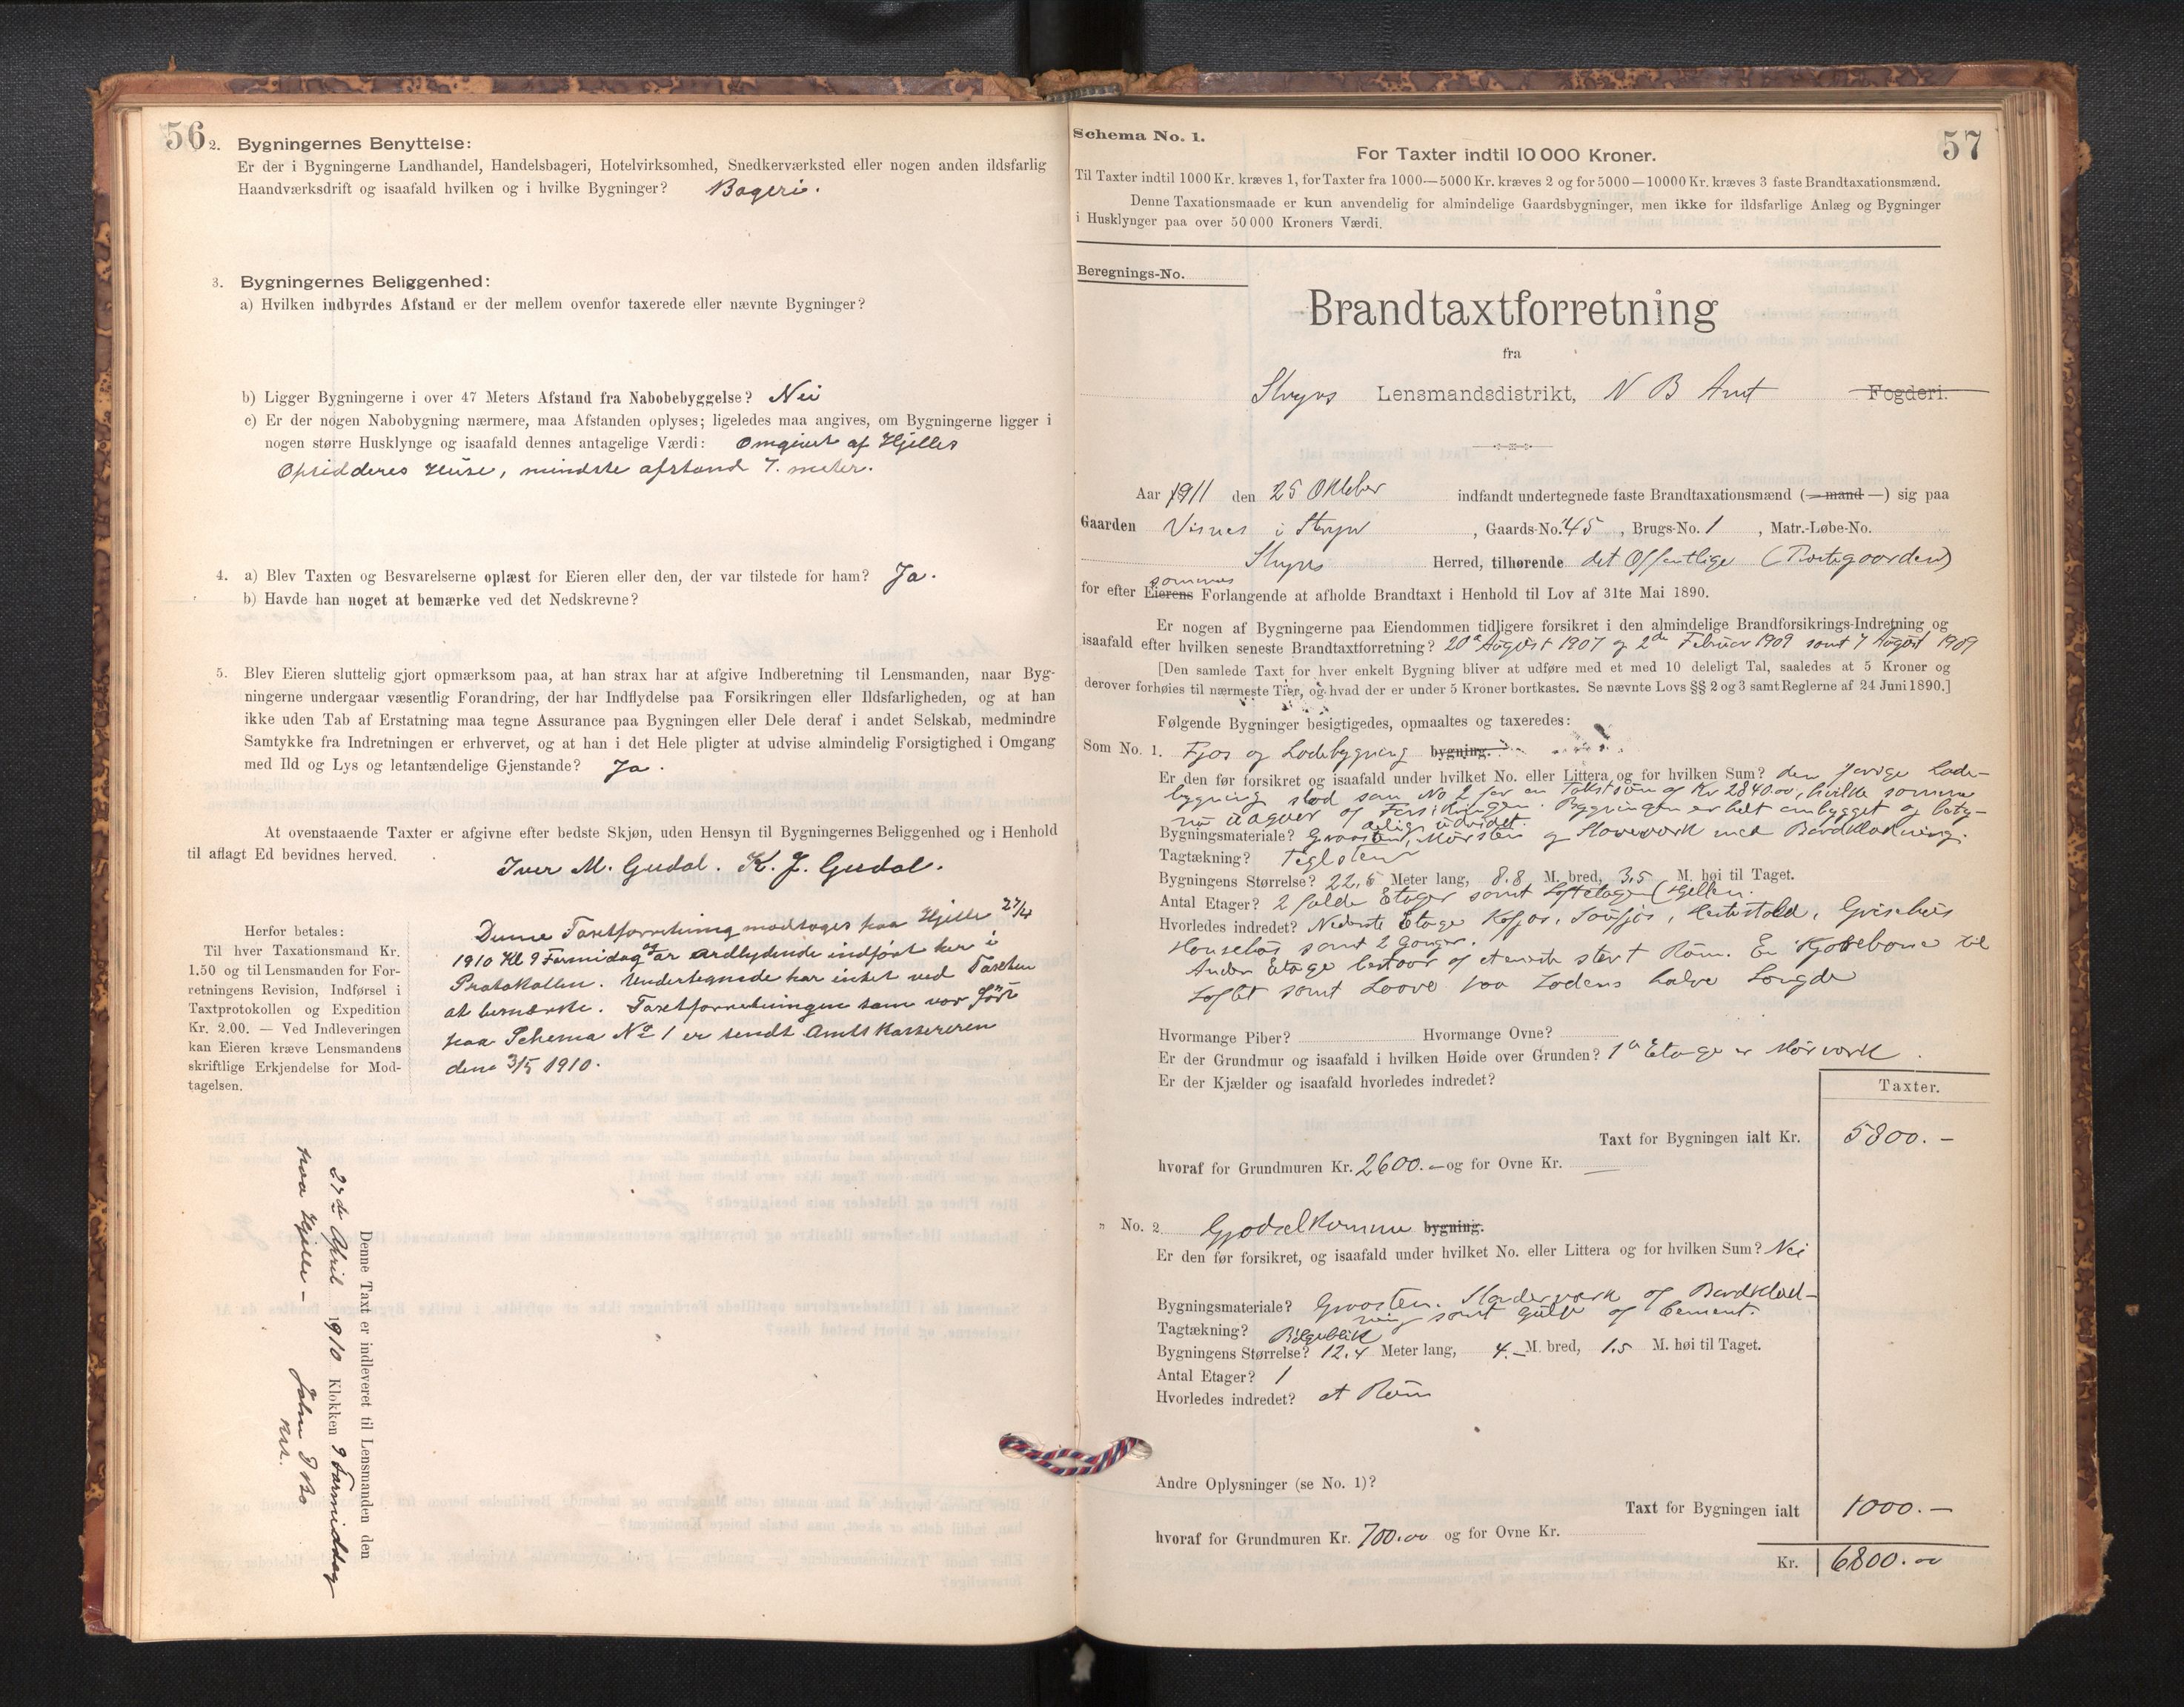 56
2. Bygningernes Benyttelse:
Er der i Bygningerne Landhandel, Handelsbageri, Hotelvirksomhed, Snedkerværksted eller nogen anden ildsfarlig
Haandværksdrift og isaafald hvilken og i hvilke Bygninger? Bageri.
3. Bygningernes Beliggenhed:
a) Hvilken indbyrdes Afstand er der mellem ovenfor taxerede eller nævnte Bygninger?
b) Ligger Bygningerne i over 47 Meters Afstand fra Nabobebyggelse? Nei
c) Er der nogen Nabobygning nærmere, maa Afstanden oplyses; ligeledes maa angives, om Bygningerne ligger i
nogen større Husklynge og isaafald dennes antagelige Værdi: Omgivet af Hjelles
Opsidderes Huse, mindste afstand 7. meter.
4. a) Blev Taxten og Besvarelserne oplæst for Eieren eller den, der var tilstede for ham? Ja.
b) Havde han noget at bemærke ved det Nedskrevne?
5. Blev Eieren sluttelig gjort opmærksom paa, at han strax har at afgive Indberetning til Lensmanden, naar Byg-
ningerne undergaar væsentlig Forandring, der har Indflydelse paa Forsikringen eller Ildsfarligheden, og at han
ikke uden Tab af Erstatning maa tegne Assurance paa Bygningen eller Dele deraf i andet Selskab, medmindre
Samtykke fra Indretningen er erhvervet, og at han i det Hele pligter at udvise almindelig Forsigtighed i Omgang
med Ild og Lys og letantændelige Gjenstande? Ja.
At ovenstaaende Taxter er afgivne efter bedste Skjøn, uden Hensyn til Bygningernes Beliggenhed og i Henhold
til aflagt Ed bevidnes herved.
Iver M. Gudal. K. J. Gudal.
Herfor betales:
Til hver Taxationsmand Kr.
1.50 og til Lensmanden for For-
retningens Revision, Indførsel i
Taxtprotokollen og Expedition
Kr. 2.00. — Ved Indleveringen
kan Eieren kræve Lensmandens
skriftlige Erkjendelse for Mod-
tagelsen.
Denne Taxtforretning modtoges paa Hjelle 27/4
1910 Kl 9 Formidag og er ordlydende indført her i
Protokollen. Undertegnede har intet ved Taxten
at bemærke. Taxtforretningen som var ført
paa Schema No 1 er sendt Amtskassereren
den 3/5 1910.
Denne Taxt er indleveret til Lensmanden den
27de April 1910 Klokken 9 Formiddag
paa Hjelle –
57
Schema No. 1.
For Taxter indtil 10 000 Kroner.
Til Taxter indtil 1000 Kr. kræves 1, for Taxter fra 1000—5000 Kr. kræves 2 og for 5000—10000 Kr. kræves 3 faste Brandtaxationsmænd.
Denne Taxationsmaade er kun anvendelig for almindelige Gaardsbygninger, men ikke for ildsfarlige Anlæg og Bygninger
i Husklynger paa over 50 000 Kroners Værdi.
Beregnings-No.
Brandtaxtforretning
fra
Stryns Lensmandsdistrikt, N B Amt Fogderi.
Aar 1911 den 25 Oktober indfandt undertegnede faste Brandtaxationsmænd (— mand —) sig paa
Gaarden Visnes i Stryn, Gaards-No. 45, Brugs-No. 1, Matr.-Løbe-No.
Stryns Herred, tilhørende det Offentlige (Prestegaarden)
for efter Eierens sammes Forlangende at afholde Brandtaxt i Henhold til Lov af 31te Mai 1890.
Er nogen af Bygningerne paa Eiendommen tidligere forsikret i den almindelige Brandforsikrings-Indretning og
isaafald efter hvilken seneste Brandtaxtforretning? 20de August 1907 og 2de Februar 1909 samt 7 August 1909
[Den samlede Taxt for hver enkelt Bygning bliver at udføre med et med 10 deleligt Tal, saaledes at 5 Kroner og
derover forhøies til nærmeste Tier, og hvad der er under 5 Kroner bortkastes. Se nævnte Lovs §§ 2 og 3 samt Reglerne af 24 Juni 1890.]
Følgende Bygninger besigtigedes, opmaaltes og taxeredes:
Som No. 1. Fjøs og Ladebygning bygning.
Er den før forsikret og isaafald under hvilket No. eller Littera og for hvilken Sum? den forige Lade-
bygning stod som No 2 for en Takstsum af Kr 2840.00, hvilke somme
nu udgaar af Forsikringen. Bygningen er helt ombygget og bety-
delig udvidet.
Bygningsmateriale? Graasten, Mursten og Stavverk med Bordklædning.
Tagtækning? Teglsten
Bygningens Størrelse? 22,5 Meter lang, 8.8 M. bred, 3,5 M. høi til Taget.
Antal Etager? 2 fulde Etager samt Loftetage (Hjellen.
Hvorledes indredet? Nederste Etage Kofjøs, Saufjøs, Hestestald, Grisehus
Hønsehus samt 2 Ganger.
Anden Etage bestaar af et eneste stort Rum. En Kjørebane til
Loftet samt Laave paa Ladens halve Længde
Hvormange Piber? Hvormange Ovne?
Er der Grundmur og isaafald i hvilken Høide over Grunden? 1ste Etage er Murverk.
Er der Kjælder og isaafald hvorledes indredet?
Taxter.
Taxt for Bygningen ialt Kr. 5800.–
hvoraf for Grundmuren Kr. 2600.– og for Ovne Kr. —
" No. 2 Gjødselkumme bygning.
Er den før forsikret, og isaafald under hvilket No. eller Littera og for hvilken Sum? Nei
Bygningsmateriale? Graasten. Standerverk og Bordklæd-
ning samt Gulv af Cement.
Tagtækning? Bølgeblik
Bygningens Størrelse? 12.4 Meter lang, 4.– M. bred, 1.5 M. høi til Taget.
Antal Etager? 1
Hvorledes indredet? et Rum
Andre Oplysninger (se No. 1)?
Taxt for Bygningen ialt 1000.–
hvoraf for Grundmuren Kr. 700.00 og for Ovne Kr.
Kr. 6800.00